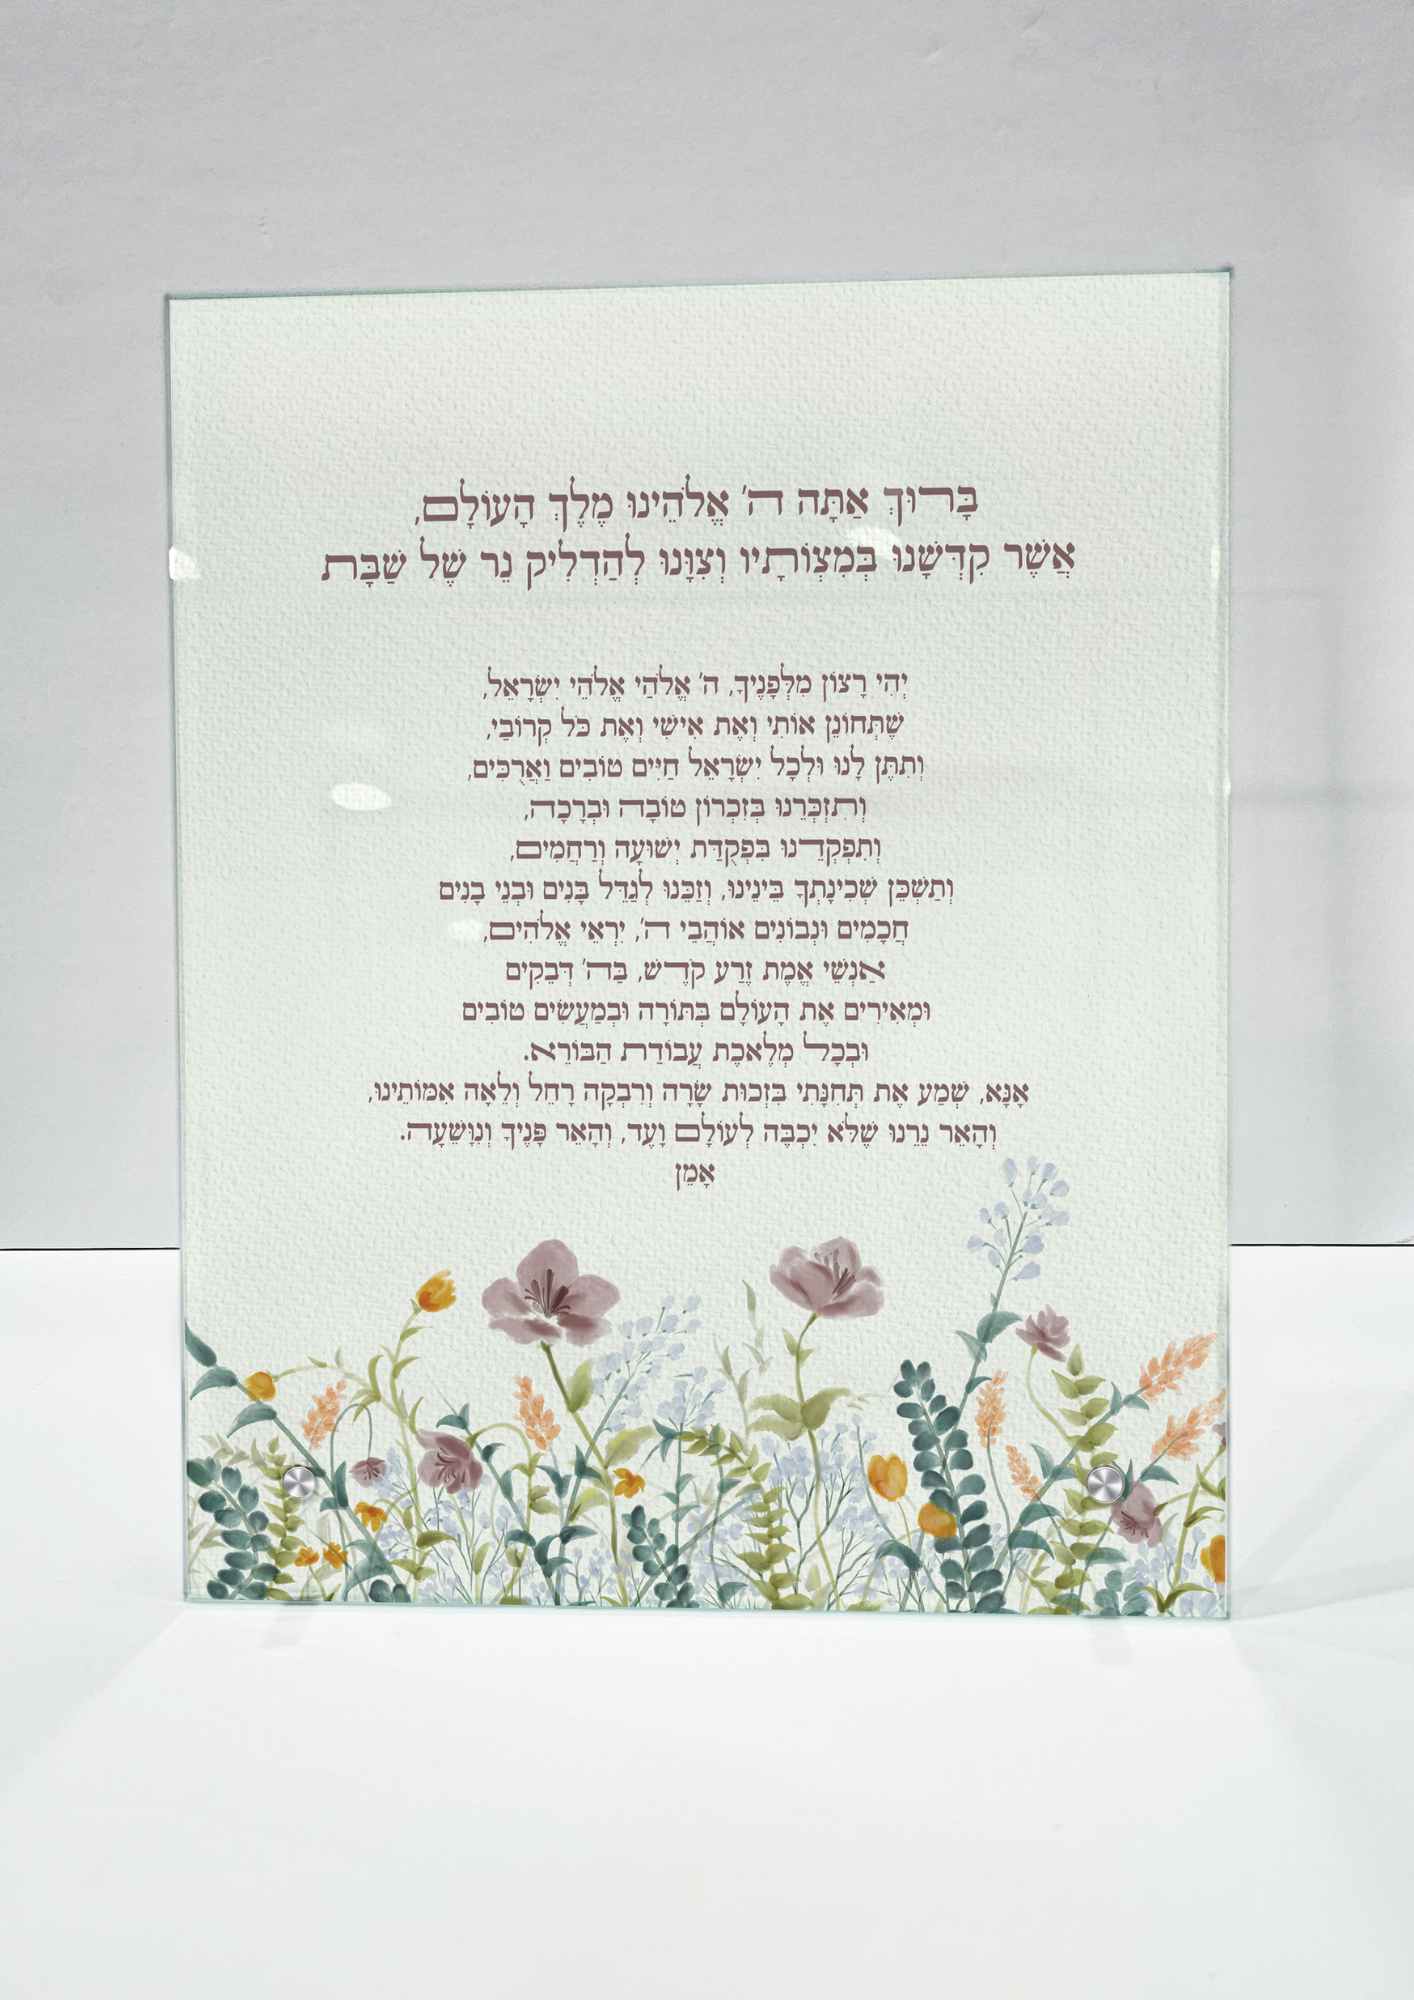 בָּרוּךְ אַתָּה ה' אֱלֹהֵינוּ מֶלֶךְ הָעוֹלָם,
אֲשֶׁר קִדְּשָׁנוּ בְּמִצְוֹתָיו וְצִוָּנוּ לְהַדְלִיק נֵר שֶׁל שַׁבָּת
יְהִי רָצוֹן מִלְּפָנֶיךָ, ה' אֱלֹהַי אֱלֹהֵי יִשְׂרָאֵל,
שֶׁתְּחוֹנֵן אוֹתִי וְאֶת אִישִׁי וְאֶת כֹּל קְרוֹבַי,
וְתִתֵּן לָנוּ וּלְכָל יִשְׂרָאֵל חַיִּים טוֹבִים וַאֲרֻכִּים,
וְתִזְכְּרֵנוּ בְּזִכְרוֹן טוֹבָה וּבְרָכָה,
וְתִפְקְדֵנוּ בִּפְקֻדַּת יְשׁוּעָה וְרַחֲמִים,
וְתַשְׁכֵּן שְׁכִינָתְךָ בֵּינֵינוּ, וְזַכֵּנוּ לְגַדֵּל בָּנִים וּבְנֵי בָנִים
חֲכָמִים וּנְבוֹנִים אוֹהֲבֵי ה', יִרְאֵי אֱלֹהִים,
אַנְשֵׁי אֱמֶת זֶרַע קֹדֶשׁ, בַּה' דְּבֵקִים
וּמְאִירִים אֶת הָעוֹלָם בְּתוֹרָה וּבְמַעֲשִׂים טוֹבִים
וּבְכָל מְלֶאכֶת עֲבוֹדַת הַבּוֹרֵא.
אָנָּא, שְׁמַע אֶת תְּחִנָּתִי בִּזְכוּת שָׂרָה וְרִבְקָה רָחֵל וְלֵאָה אִמּוֹתֵינוּ,
וְהָאֵר נֵרֵנוּ שֶׁלֹּא יִכְבֶּה לְעוֹלָם וָעֶד, וְהָאֵר פָּנֶיךָ וְנִוָּשֵׁעָה.
אָמֵן